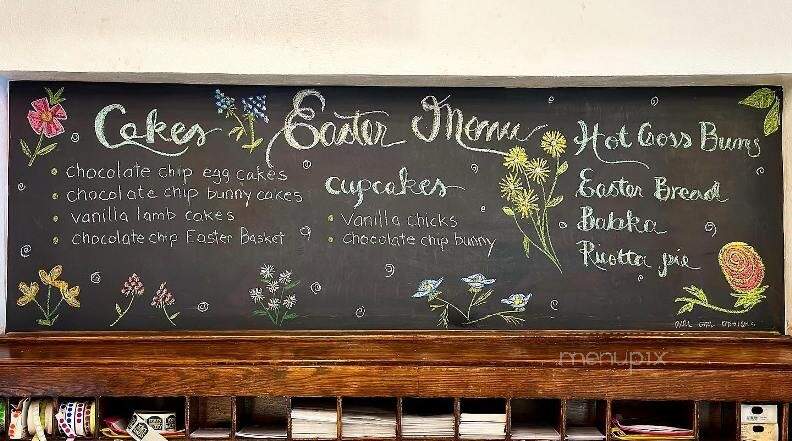 Easter Menu
Cakes
• chocolate chip egg cakes
• chocolate chip bunny cakes
• vanilla lamb cakes
• chocolate chip Easter Basket
cupcakes
• Vanilla chicks
• chocolate chip bunny
Hot Cross Buns
Easter Bread
Babka
Ricotta pie
menupix